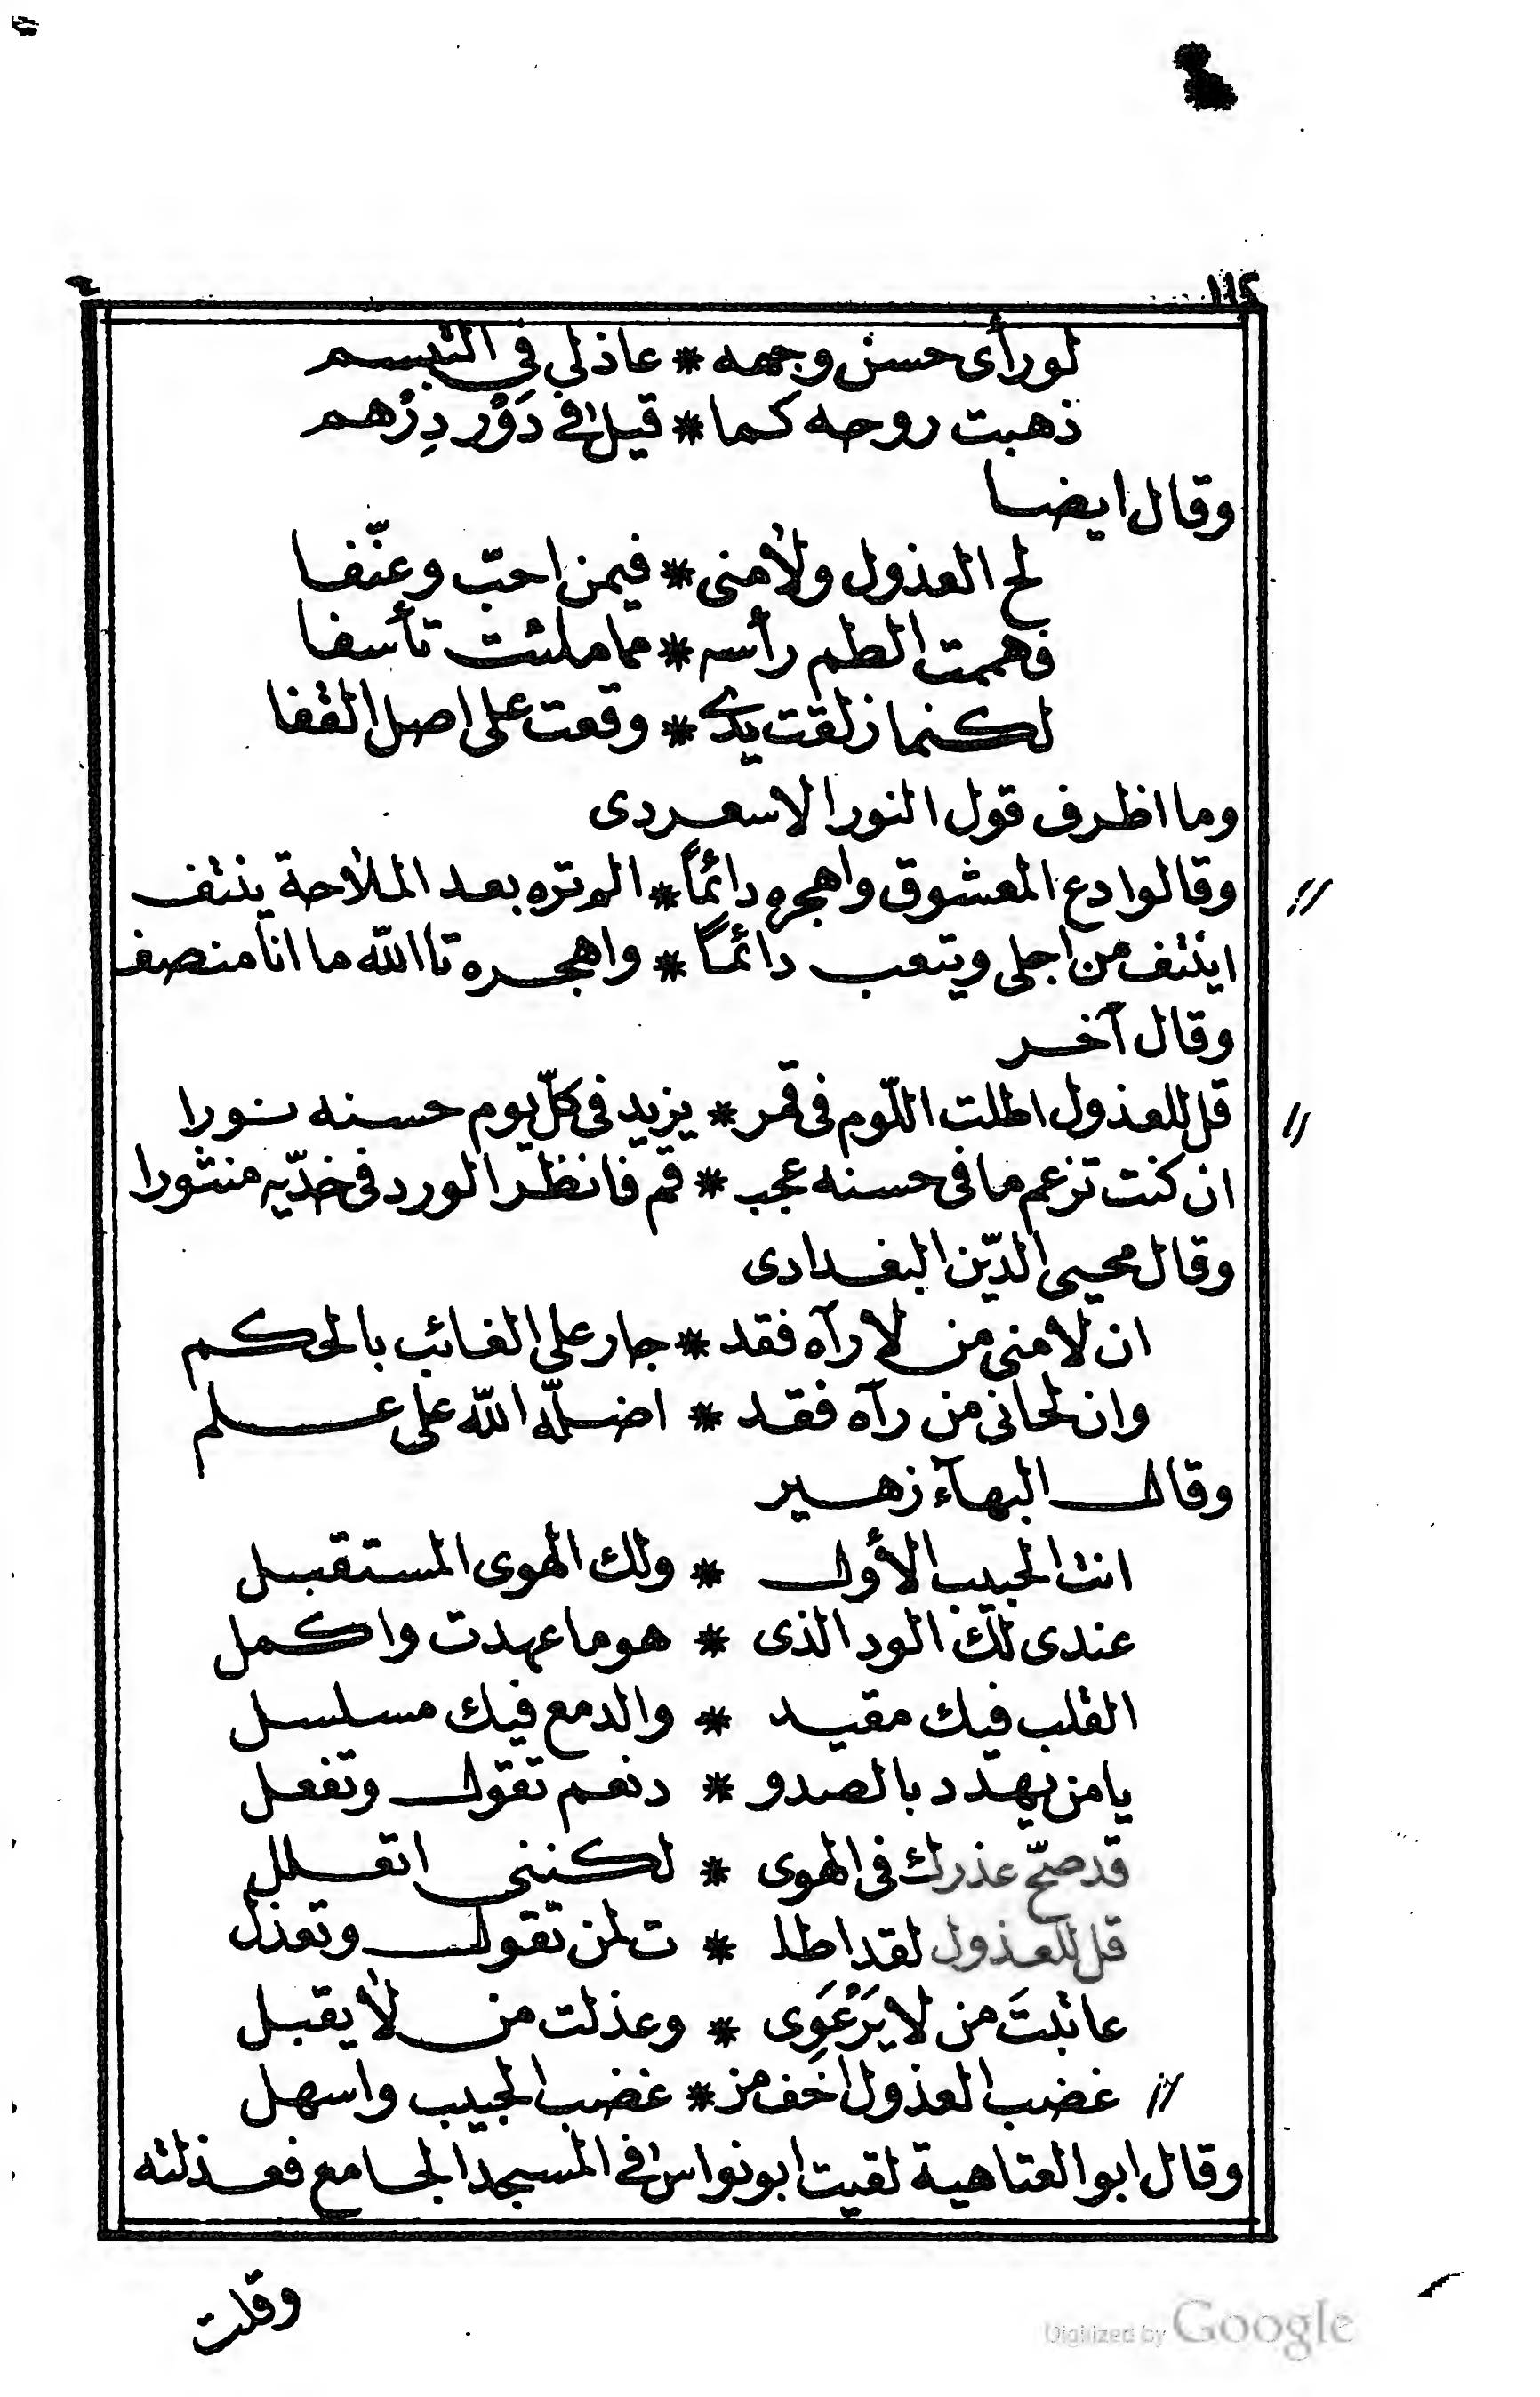 ١١٤
لو رأى حسن وجهه * عاذلي في التبسم
ذهبت روحه كما * قيل في دَوْر دِرْهم
وقال ايضا
لح العذول ولامنى * فيمن احبّ وعنّفا
فهممت الطم رأسه * مما ملئت تأسفا
لكنما زلقت يدى * وقعت على اصل القفا
وما اظرف قول النور الاسعردى
وقالوا دع المعشوق واهجره دائماً * الم تره بعد الملاحة ينتف
اينتف من اجلى ويتعب دائماً * واهجره تاالله ما انا منصف
وقال آخر
قل للعذول اطلت اللّوم فى قمر * يزيد فى كلّ يوم حسنه نورا
ان كنت تزعم ما فى حسنه عجب * قم فانظر الورد فى خدّيه منثورا
وقال محيى الدّين البغدادى
ان لامنى من لا رآه فقد * جار على الغائب بالحكم
وان لحانى من رآه فقد * اضلّه اللّه على علم
وقال البهآء زهير
انت الحبيب الأول * ولك الهوى المستقبل
عندى لك الود الذى * هو ما عهدت واكمل
القلب فيك مقيد * والدمع فيك مسلسل
يا من يهدد بالصدو * د نعم تقول وتفعل
قد صحّ عذرك فى الهوى * لكننى اتعلل
قل للعذول لقد اطل‍ا * ت لمن تقول وتعذل
عاتبتَ من لا يَرْعَوِى * وعذلت من لا يقبل
غضب العذول اخف من * غضب الحبيب واسهل
وقال ابو العتاهية لقيت ابو نواس فى المسجد الجامع فعذلته
وقلت
Digitized by Google